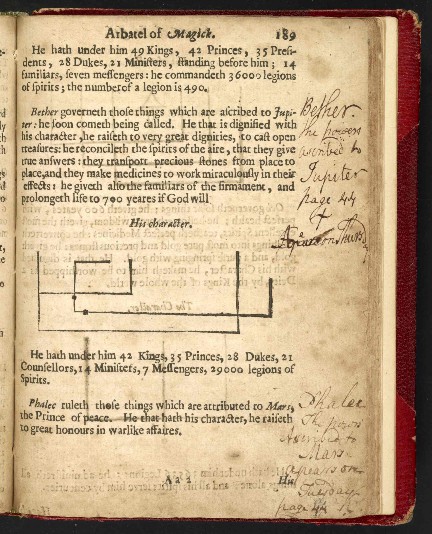 Arbatel of Magick. 189
He hath under him 49 Kings, 42 Princes, 35 Presi-
dents, 28 Dukes, 21 Ministers, standing before him; 14
familiars, seven messengers: he commandeth 36000 legions
of spirits; the number of a legion is 490.
Bether governeth those things which are ascribed to Jupi-
ter: he soon cometh being called. He that is dignified with
his character, he raiseth to very great dignities, to cast open
treasures: he reconcileth the spirits of the aire, that they give
true answers: they transport precious stones from place to
place, and they make medicines to work miraculously in their
effects: he giveth also the familiars of the firmament, and
prolongeth life to 700 yeares if God will
His character.
The Character.
He hath under him 42 Kings, 35 Princes, 28 Dukes, 21
Counsellors, 14 Ministers, 7 Messengers, 29000 legions of
Spirits.
Phalec ruleth those things which are attributed to Mars,
the Prince of peace. He that hath his character, he raiseth
to great honours in warlike affaires.
A a 2 His
Bether.
the powers
ascribed to
Jupiter
page 44
Phalec
The powers
Ascribed to
Mars
apears on
Tuesday
page 44